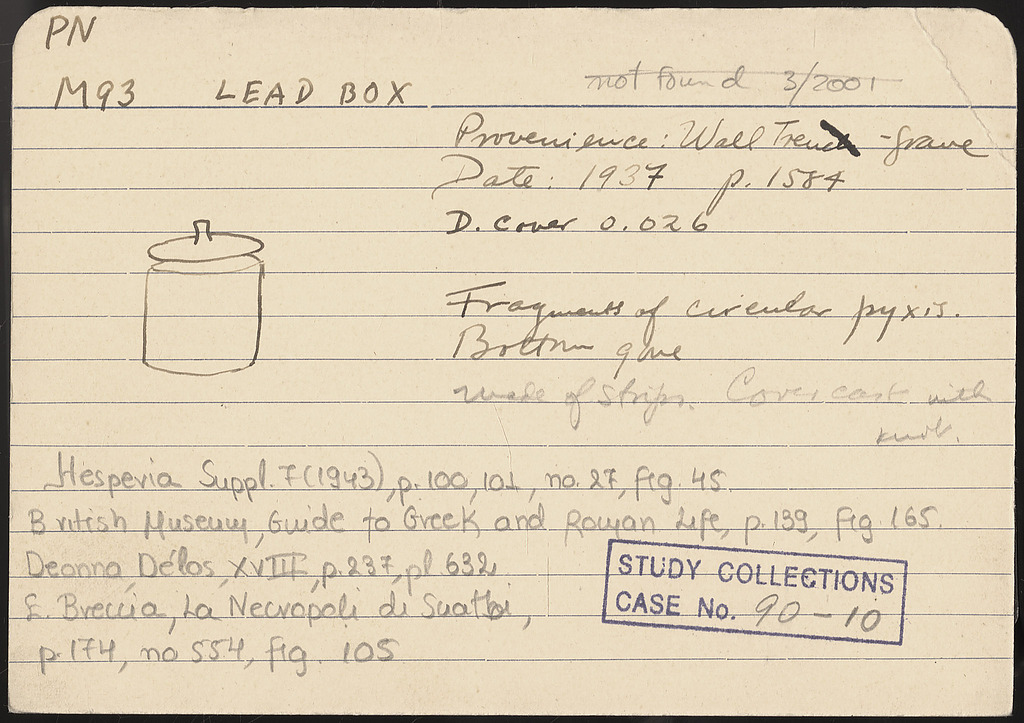 PN
M93 LEAD BOX
not found 3/2001
Provenience: Wall Trench - grave
Date: 1937 p. 1584
D. cover 0.026
Fragments of circular pyxis.
Bottom gone
made of strips. Cover cast with
knob.
Hesperia Suppl. 7 (1943), p. 100, 101, no. 27, fig. 45.
British Museum, Guide to Greek and Roman Life, p. 139, fig. 165.
Deonna, Délos, XVIII, p. 237, pl. 632,
E. Breccia, La Necropoli di Sciatbi,
p. 174, no 554, fig. 105
STUDY COLLECTIONS
CASE No. 90-10